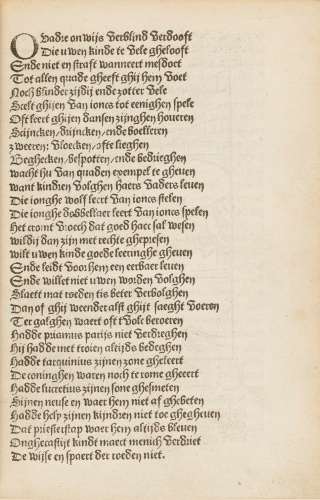 O vadre onwijs verblind verdooft
Die uwen kinde te vele ghelooft
Ende niet en straft wanneert mesdoet
Tot allen quade gheeft ghij hem voet
Noch blinder zijdij ende zotter vele
Stelt ghijen van ioncs tot eenighen spele
Oft leert ghijen dansen zijnghen houeren
Suijncken/drijncken/ende boelleren
zweeren: vloecken/ofte lieghen
Beghecken/bespotten/ende bedrieghen
wacht hu van quaden exempel te gheuen
want kindren volghen haers vaders leuen
Die ionghe wolf leert van ioncs stelen
Die ionghe dobbellaer leert van ioncs spelen
Het cromt vroech dat goed haec sal wesen
wildij dan zijn met rechte ghepresen
wilt uwen kinde goede leeringhe gheuen
Ende leidt voor hem een eerbaer leuen
Ende willet niet uwen worden volghen
Slaett mat roeden tis beter verbolghen
Dan of ghij weender alst ghijt saeght voeren
Ter galghen waert oft tvole beroeren
Hadde priamus parijs niet verdreghen
Hij hadde met troien altijds bedeghen
Hadde tarquinius zijnen zone gheleert
De coninghen waren noch te rome gheeert
Hadde lucretius zijnen sone ghesmeten
Sijnen neuse en waer hem niet af ghebeten
Hadde hely zijnen kijndren niet toe ghegheuen
Dat priesterstap waer hem altijds bleuen
Onghecastijt kindt maect menich verdriet
De wijse en spaert der roeden niet.